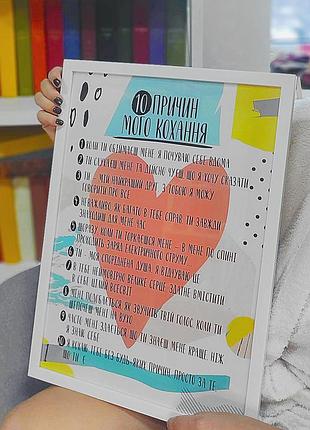 10 ПРИЧИН
МОГО КОХАННЯ
1 КОЛИ ТИ ОБІЙМАЄШ МЕНЕ, Я ПОЧУВАЮ СЕБЕ ВДОМА
2 ТИ СЛУХАЄШ МЕНЕ ТА ДІЙСНО ЧУЄШ, ЩО Я ХОЧУ СКАЗАТИ
3 ТИ МІЙ НАЙКРАЩИЙ ДРУГ, З ТОБОЮ Я МОЖУ
ГОВОРИТИ ПРО ВСЕ
4 НЕВАЖЛИВО, ЯК БАГАТО В ТЕБЕ СПРАВ, ТИ ЗАВЖДИ
ЗНАХОДИШ ДЛЯ МЕНЕ ЧАС
5 ЩОРАЗУ, КОЛИ ТИ ТОРКАЄШСЯ МЕНЕ - В МЕНЕ ПО СПИНІ
ПРОХОДИТЬ ЗАРЯД ЕЛЕКТРИЧНОГО СТРУМУ
6 ТИ - МОЯ СПОРІДНЕНА ДУША, Я ВІДЧУВАЮ ЦЕ
7 В ТЕБЕ НЕЙМОВІРНО ВЕЛИКЕ СЕРЦЕ, ЗДАТНЕ ВМІСТИТИ
В СЕБЕ ЦІЛИЙ ВСЕСВІТ
8 МЕНІ ПОДОБАЄТЬСЯ, ЯК ЗВУЧИТЬ ТВІЙ ГОЛОС, КОЛИ ТИ
ШЕПОЧЕШ МЕНІ НА ВУХО
9 ЧАСТО МЕНІ ЗДАЄТЬСЯ, ЩО ТИ ЗНАЄШ МЕНЕ КРАЩЕ, НІЖ
Я ЗНАЮ СЕБЕ
10 Я КОХАЮ ТЕБЕ БЕЗ БУДЬ-ЯКИХ ПРИЧИН, ПРОСТО ЗА ТЕ,
ЩО ТИ Є